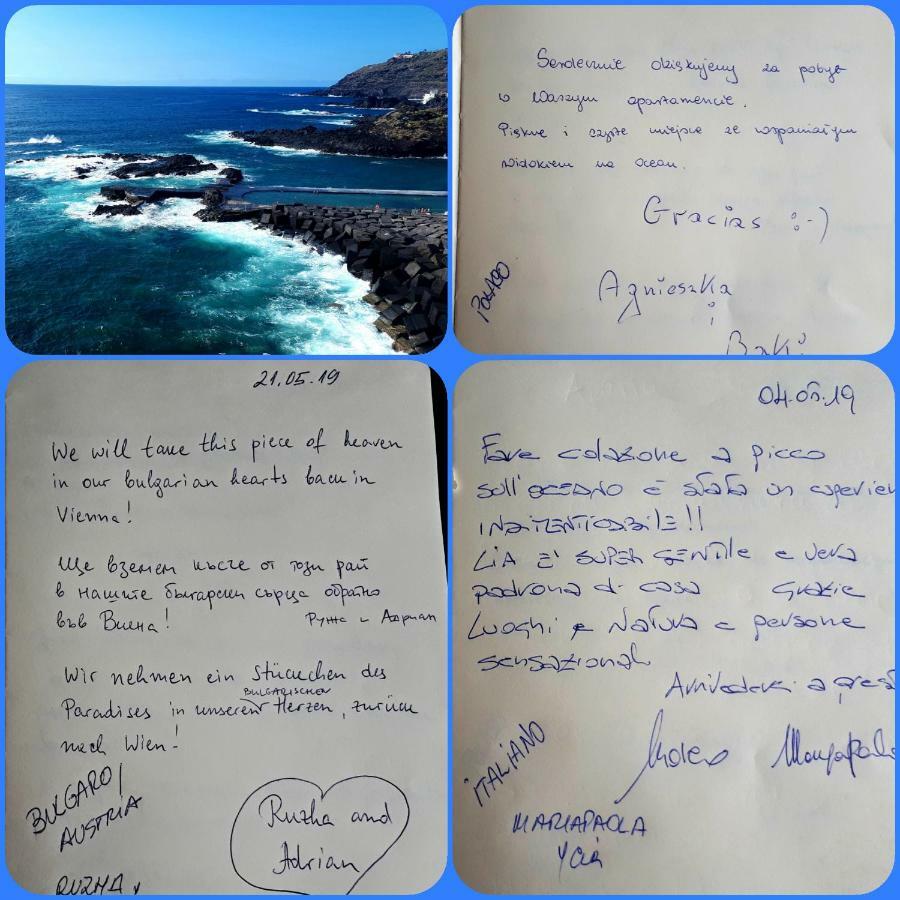 Serdecznie dziękujemy za pobyt
w Waszym apartamencie.
Piękne i czyste miejsce ze wspaniałym
widokiem na ocean.
Gracias :-)
Agnieszka
i
POLACO
21.05.19
We will take this piece of heaven
in our bulgarian hearts back in
Vienna!
Ще вземем късче от този рай
в нашите български сърца обратно
във Виена!
Ружа и Адриан
Wir nehmen ein Stückchen des
BULGARISCHEN
Paradises in unseren Herzen, zurück
nach Wien!
BULGARO/
AUSTRIA
Ruzha and
Adrian
RUZHA y
04.05.19
Fare colazione a picco
sull'OCEANO È STATA un esperien
INDIMENTICABILE!!
LIA E' SUPER GENTILE e vera
padrona di casa Grazie
Luoghi e Natura e persone
sensazionali
Arrivederci a prest
ITALIANO
MARIAPAOLA